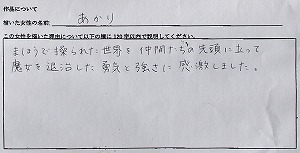 作品について
描いた女性の名前: あかり
この女性を描いた理由について以下の欄に120字以内で説明してください。
まほうで操られた世界を仲間たちの先頭に立って
魔女を退治した勇気と強さに感激しました。